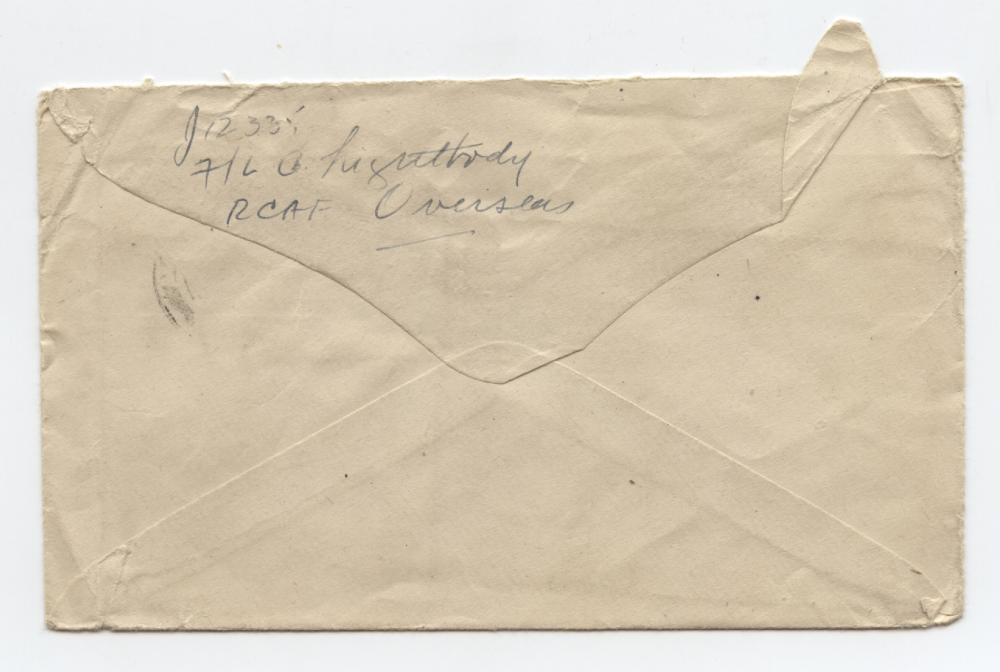 J12335
F/L O. Lightbody
RCAF Overseas